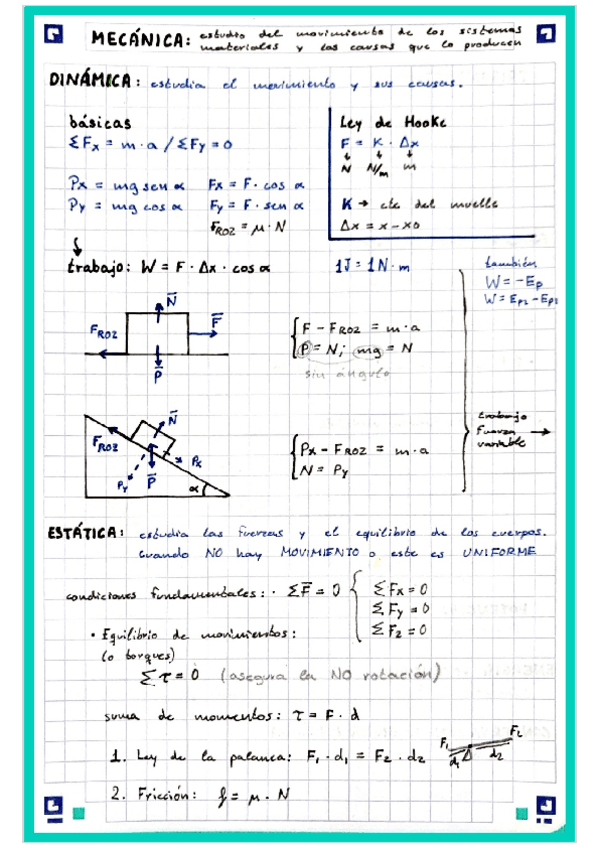 MECÁNICA: estudio del movimiento de los sistemas
materiales y las causas que lo producen
DINÁMICA: estudia el movimiento y sus causas.
básicas
ΣFx = m·a / ΣFy = 0
Px = mg sen α Fx = F· cos α
Py = mg cos α Fy = F· sen α
FROZ = μ·N
Ley de Hooke
F = K · Δx
N N/m m
K → cte del muelle
Δx = x-x0
trabajo: W = F · Δx · cos α 1J = 1N·m
también
W = -Ep
W = Ep2 - Ep1
N
FROZ F
P
F - FROZ = m·a
P = N; mg = N
sin ángulo
N
FROZ
Px
Py P
α
Px - FROZ = m·a
N = Py
trabajo
Fuerza →
variable
ESTÁTICA: estudia las fuerzas y el equilibrio de los cuerpos.
Cuando NO hay MOVIMIENTO o este es UNIFORME
condiciones fundamentales: · ΣF = 0
ΣFx = 0
ΣFy = 0
ΣFz = 0
• Equilibrio de movimientos:
(o torques)
Στ = 0 (asegura la NO rotación)
suma de momentos: τ = F · d
1. Ley de la palanca: F1 · d1 = F2 · d2
F1 F2
d1 d2
2. Fricción: f = μ · N